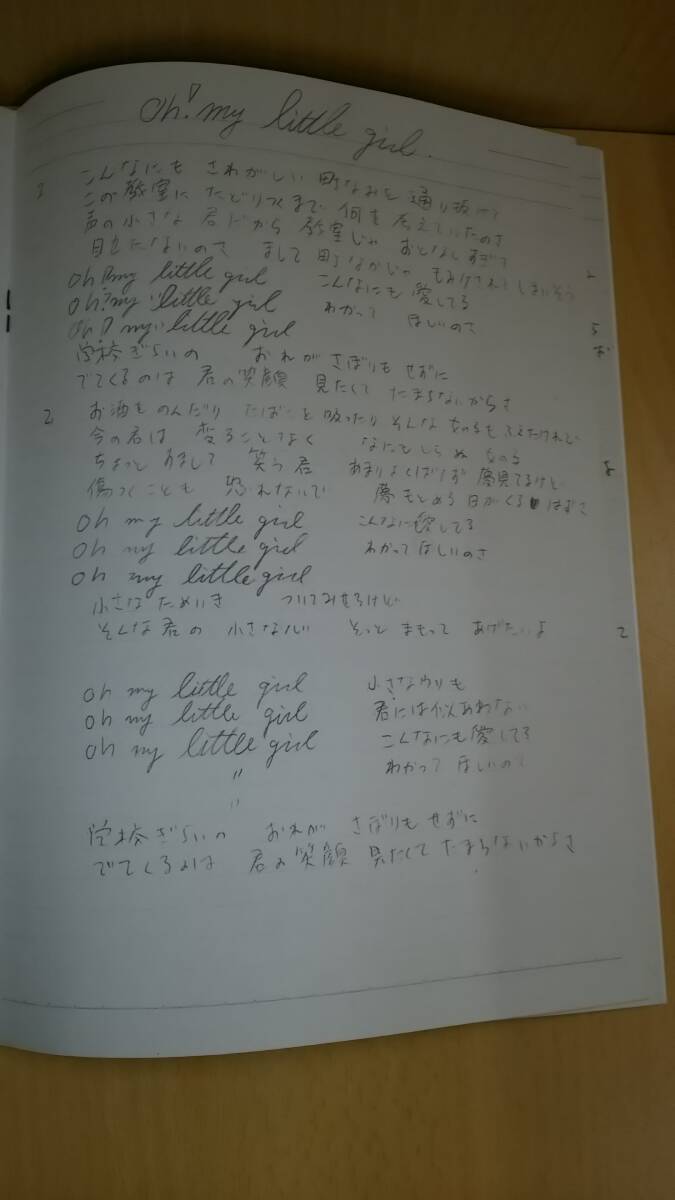 Oh! my little girl.
3 こんなにも さわがしい 町なみを 通り抜けて
この教室に たどりつくまで 何を考えていたのさ
声の小さな 君だから 教室じゃ おとなしすぎて
目立たないのさ まして町なかじゃ もみけされてしまいそう
Oh! my little girl こんなにも 愛してる
Oh! my little girl わかって ほしいのさ
Oh! my little girl
学校ぎらいの おれが さぼりも せずに
でてくるのは 君の笑顔 見たくて たまらないからさ
2 お酒を のんだり たばこを 吸ったり そんな 女の子も ふえたけれど
今の君は 変ることなく なにもしらぬ 女の子
ちょっと 笑う君 あまり よくばらず 夢見てるけど
傷つくことも 恐れないで 夢もとめる 日がくる はずさ
Oh my little girl こんなに愛してる
Oh my little girl わかって ほしいのさ
Oh my little girl
小さな ためいき ついてみせるけど
そんな君の 小さな心 そっと まもって あげたいよ 2
Oh my little girl 小さな ウソも
Oh my little girl 君には 似あわない
Oh my little girl こんなにも 愛してる
〃 わかって ほしいの
〃
学校ぎらいの おれが さぼりも せずに
でてくるのは 君の笑顔 見たくて たまらないからさ